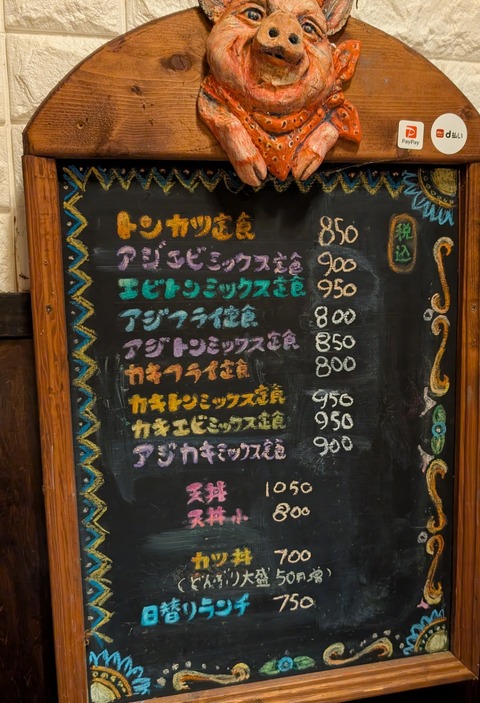 PayPay
d払い
税込
トンカツ定食 850
アジエビミックス定食 900
エビトンミックス定食 950
アジフライ定食 800
アジトンミックス定食 850
カキフライ定食 800
カキトンミックス定食 950
カキエビミックス定食 950
アジカキミックス定食 900
天丼 1050
天丼小 800
カツ丼 700
(どんぶり大盛50円増)
日替りランチ 750